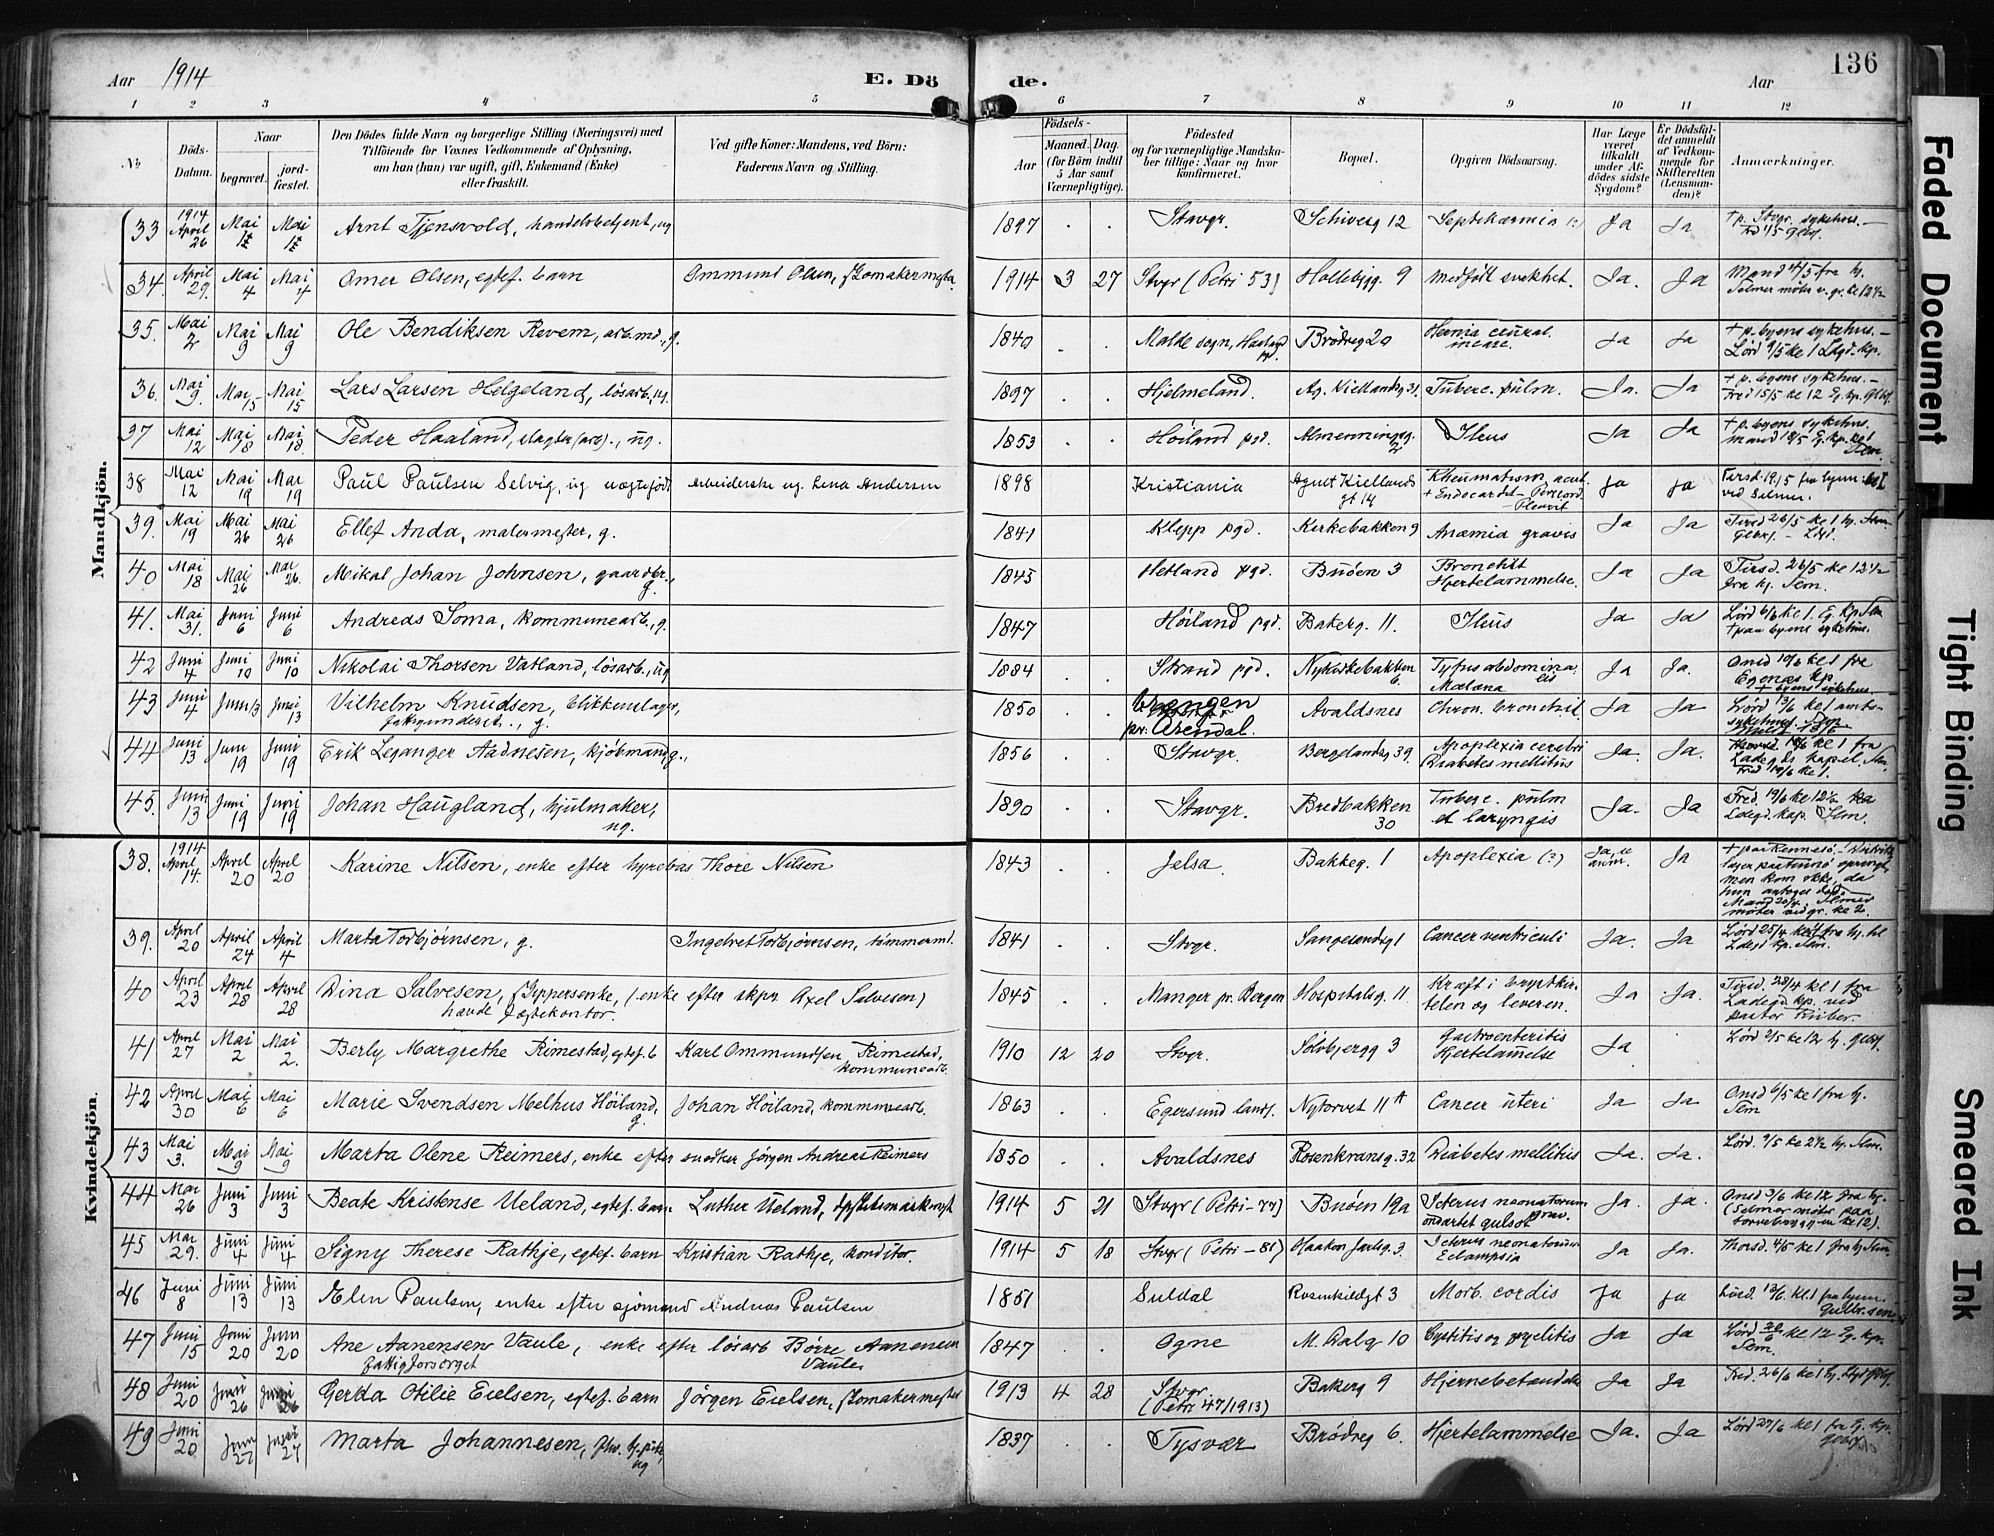 136
Aar 1914 E. Dö de. Aar
1 2 3 4 5 6 7 8 9 10 11 12
No Döds-Datum. Naar begravet. jord-fæstet. Den Dödes fulde Navn og borgerlige Stilling (Næringsvei) med Tilföiende for Voxnes Vedkommende af Oplysning, om han (hun) var ugift, gift, Enkemand (Enke) eller fraskilt. Ved gifte Koner: Mandens, ved Börn: Faderens Navn og Stilling. Födsels- Aar Maaned. Dag. (for Börn indtil 5 Aar samt Værnepligtige). Födested og for værnepligtige Mandskaber tillige: Naar og hvor konfirmeret. Bopæl. Opgiven Dödsaarsag. Har Læge været tilkaldt under Afdödes sidste Sygdom? Er Dödsfaldet anmeldt af Vedkommende for Skifteretten (Lensmanden)? Anmærkninger.
Mandkjön.
33 1914 April 26 Mai Mai Arnt Tjensvold, handelsbetjent, ug 1897 Stavgr. Schivesg 12 Septikæmia (?) Ja Ja + p. Stvgr. sykehus.
34. April 29. Mai 4 Mai 4 Omer Olsen, egtef. barn Ommund Olsen, skomakermester 1914 3 27 Stvgr (Petri 53) Hollebygg. 9 Medfødt svakhet. Ja. Ja Mand 4/5 fra hj. Selmer møter v. gr. kl 12½
35. Mai 2 Mai 9 Mai 9 Ole Bendiksen Revem, arb.md., g. 1840 Malde sogn, Haaland pgd. Brødreg 20 Hernia crural. incarc. Ja Ja + p. byens sykehus. Lørd 9/5 kl 1 Ldgd. kp.
36. Mai 9. Mai 15 Mai 15 Lars Larsen Helgeland, løsarb., ug. 1897 Hjelmeland. Ag. Kiellandsg 31. Tuberc. pulm. Ja. Ja + p. byens sykehus. Fred 15/5 kl 12 Eg. kp.
37 Mai 12 Mai 18 Mai 18. Peder Haaland, slagter (arb)., ug. 1853 Høiland pgd. Almenningsg. 2 Ileus Ja Ja + p. byens sykehus. Mand 18/5 Eg. kp. kl 1 Slm.
38 Mai 12 Mai 19 Mai 19 Paul Paulsen Selvig, ug uægtefødt Arbeiderske ug. Lena Andersen 1898 Kristiania Agnet Kiellands gt 14 Rheumatism. acut. + Endocardit - Pericard. - Pleurit Ja Ja Tirsd. 19/5 fra hjem. kl 1 ved Selmer.
39. Mai 19 Mai 26 Mai 26 Ellef Anda, malermester, g. 1841 Klepp pgd. Kirkebakken 9 Anæmia gravis Ja Ja Tirsd 26/5 kl 1 hj. Slm
40 Mai 18 Mai 26 Mai 26. Mikal Johan Johnsen, gaardbr., g. 1845 Hetland pgd. Buøen 3 Bronchitt Hjertelammelse. Ja Ja Tirsd. 26/5 kl 12½ fra hj. Slm.
41. Mai 31. Juni 6 Juni 6 Andreas Soma, kommunearb., g. 1847 Høiland pgd. Bakerg. 11. Ileus Ja Ja Lørd 6/6 kl 1. Eg. kp Slm + paa byens sykehus.
42 Juni 4 Juni 10 Juni 10 Nikolai Thorsen Vatland, løsarb., ug 1884 Strand pgd. Nykirkebakken 6. Tyfus abdominalis Melæna Ja Ja. Onsd 10/6 kl 1 fra Egenæs kp. + byens sykehus.
43 Juni 4 Juni 13 Juni 13 Vilhelm Knudsen, blikkenslager, fatigunderst., g. 1850 pr. Arendal. Avaldsnes Chron. bronchit. Ja Ja. Lørd 13/6 kl 1 amts-sykehus. Slm.
44 Juni 13 Juni 19 Juni 19 Erik Leganger Aadnesen, kjøbmand, g., 1856 Stavgr. Bergelandsg 39. Apoplexia cerebri Diabetes mellitus Ja. Ja. kl 1 fra Ladegds kapel. Slm. Fred 19/6 kl 1.
45. Juni 13 Juni 19 Juni 19 Johan Haugland, hjulmaker, ug. 1890 Stavgr. Bredbakken 30 Tuberc. pulm et laryngis Ja. Ja Fred. 19/6 kl 12½ Ldegd. kap. Slm.
Kvindekjön.
38. 1914 April 14. April 20 April 20 Karine Nilsen, enke efter byrebas Thore Nilsen 1843 Jelsa. Bakkeg. 1 Apoplexia (?) Ja, se anm. Ja men kom ikke, da hun antoges død. Mand 20/4. Selmer møter ved gr. kl 2.
39. April 20 April 24 April 4 Marta Torbjørnsen, g. Ingebret Torbjørnsen, tømmermd. 1841 Stvgr. Sangesandsg 1 Cancer ventriculi Ja. Ja Lørd 25/4 Ldegd kp. Slm.
40 April 23 April 28 April 28 Dina Salvesen, skippersenke, (enke efter skpr Axel Salvesen) havde fragtekontor. 1845 Manger pr. Bergen Hospitalsg. 11 Kræft i brystkirtelen og leveren. Ja Ja. Tirsd. 28/4 kl 1 fra Ladegd. kp. ved pastor Riiber.
41 April 27 Mai 2 Mai 2. Berly Margrethe Rimestad, egtef. b Karl Ommundsen Rimestad, kommunearb. 1910 12 20 Stvgr. Solvbjergg 3 Gastroenteritis Hjertelammelse Ja Lørd 2/5 kl 12 hj.
42 April 30 Mai 6 Mai 6 Marie Svendsen Melhus Høiland, g. Johan Høiland, kommunearb. 1863 Egersund lands. Nytorvet 11 A Cancer uteri Ja Ja Onsd 6/5 kl 1 fra hj. Slm
43 Mai 3. Mai 9 Mai 9 Marta Olene Reimers, enke efter snedker Jørgen Andreas Reimers 1850 Avaldsnes Rosenkransg. 32 Diabetes mellitus Ja. Ja. Lørd. 9/5 kl 2½ hj. Slm.
44 Mai 26 Juni 3 Juni 3 Beate Kristense Ueland, egtef. barn Luther Ueland, 1914 5 21 Stvgr (Petri - 77) Buøen 19a Icterus neonatorum grav. ondartet gulsot Ja. Ja. Onsd 3/6 kl 12 fra hj. (Selmer møter paa
45 Mai 29. Juni 4 Juni 4 Signy Therese Rathje, egtef. barn Kristian Rathje, konditor. 1914 5 18 Stvgr (Petri - 81) Haakon Jarlsg. 3. Icterus neonatorum Eclampsia Ja Ja. Thorsd 4/6 kl 1 fra hj Slm.
46 Juni 8 Juni 13 Juni 13 Elen Paulsen, enke efter sjømand Andreas Paulsen 1851 Suldal Rosenkildegt 3 Morb. cordis Ja Ja Lørd. 13/6. kl. 1 fra hjem.
47 Juni 15 Juni 20 Juni 20 Ane Aanensen Vaule, enke efter løsarb Børre Aanensen Vaule fattigforsørget 1847 Ogne M. Dalsg 10 Cystitis og pyelitis Ja Ja Lørd 20/6 kl 12 Eg. kp. Slm.
48 Juni 20 Juni 26 Juni 26 Gerda Otilie Eielsen, egtef. barn Jörgen Eielsen, skomakermester 1913 4 28 Stvgr. (Petri 47/1913) Bakerg 9 Hjernebetændelse Ja Ja Fred. 26/6 kl 1 hj.
49 Juni 20 Juni 27 Juni 27 Marta Johannesen, ug 1837 Tysvær Brødreg 6. Hjertelammelse Ja. Ja Lørd 27/6 kl 1 fra Eg. kp.
Faded Document
Tight Binding
Smeared Ink